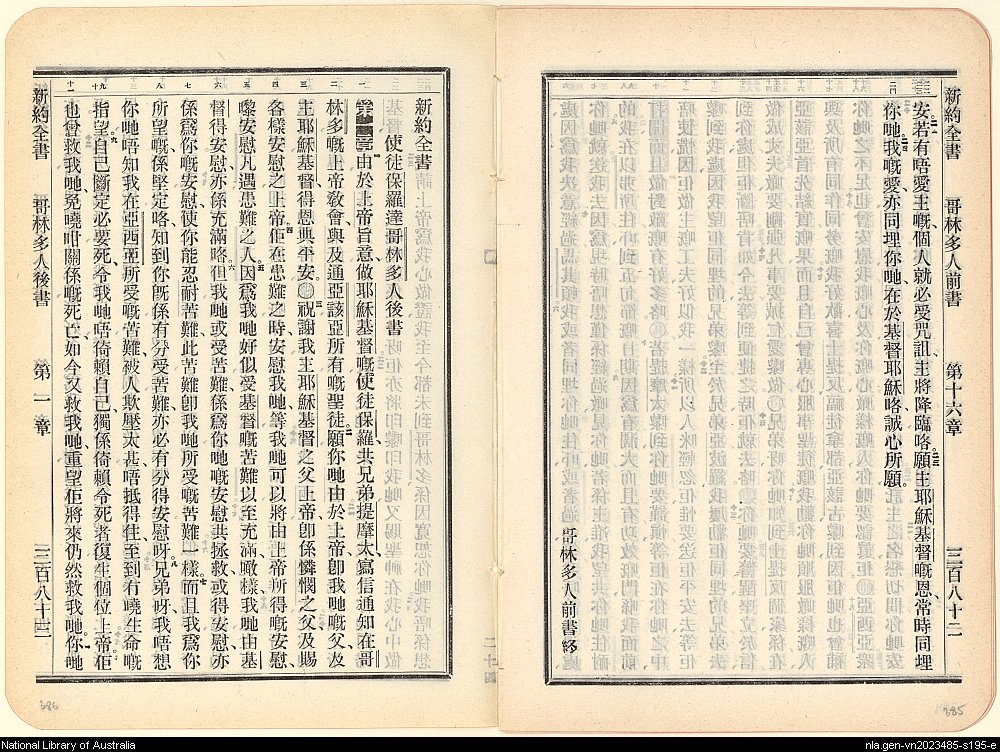 新約全書 哥林多人前書 第十六章 三百八十二
安若有唔愛主嘅個人就必受咒詛主將降臨咯願主耶穌基督嘅恩常時同埋
你哋我嘅愛亦同埋你哋在於基督耶穌咯誠心所願
哥林多人前書終
385
新約全書
使徒保羅達哥林多人後書
由於上帝旨意做耶穌基督嘅使徒保羅共兄弟提摩太寫信通知在哥
林多嘅上帝敎會與及通亞該亞所有嘅聖徒願你哋由於上帝卽我哋嘅父及
主耶穌基督得恩典平安〇祝謝我主耶穌基督之父上帝卽係憐憫之父及賜
各樣安慰之上帝佢在患難之時安慰我哋等我哋可以將由上帝所得嘅安慰
嚟安慰凡遇患難之人因爲我哋好似受基督嘅苦難以至充滿噉樣我哋由基
督得安慰亦係充滿咯但我哋或受苦難係爲你哋嘅安慰共拯救或得安慰亦
係爲你嘅安慰使你能忍耐苦難此苦難卽我哋所受嘅苦難一樣而且我爲你
所望嘅係堅定咯知到你旣係有分受苦難亦必有分得安慰呀兄弟呀我唔想
你哋唔知我在亞西亞所受嘅苦難被人欺壓太甚唔抵得住至到有嘵生命嘅
指望自己斷定必要死令我哋唔倚賴自己獨係倚賴令死者復生個位上帝佢
也曾救我哋免嘵咁關係嘅死已如今又救我哋重望佢將來仍然救我哋你哋
新約全書 哥林多人後書 第一章 三百八十三
386
National Library of Australia
nla.gen-vn2023485-s195-e